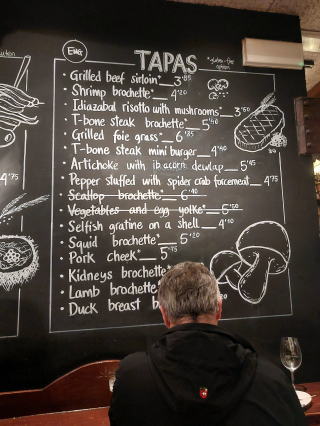 ENG
TAPAS
*gluten-free option
• Grilled beef sirloin* 3'85
• Shrimp brochette* 4'20
• Idiazabal risotto with mushrooms* 3'50
• T-bone steak brochette* 5'40
• Grilled foie grass* 6'85
• T-bone steak mini burger 4'40
• Artichoke with ib.acorn. dewlap 5'45
• Pepper stuffed with spider crab forcemeat 4'75
• Scallop brochette* 6'40
• Vegetables and egg yolke* 5'50
• Selfish gratine on a shell 4'90
• Squid brochette* 5'20
• Pork cheek* 5'75
• Kidneys brochette*
• Lamb brochette*
• Duck breast b
4'75